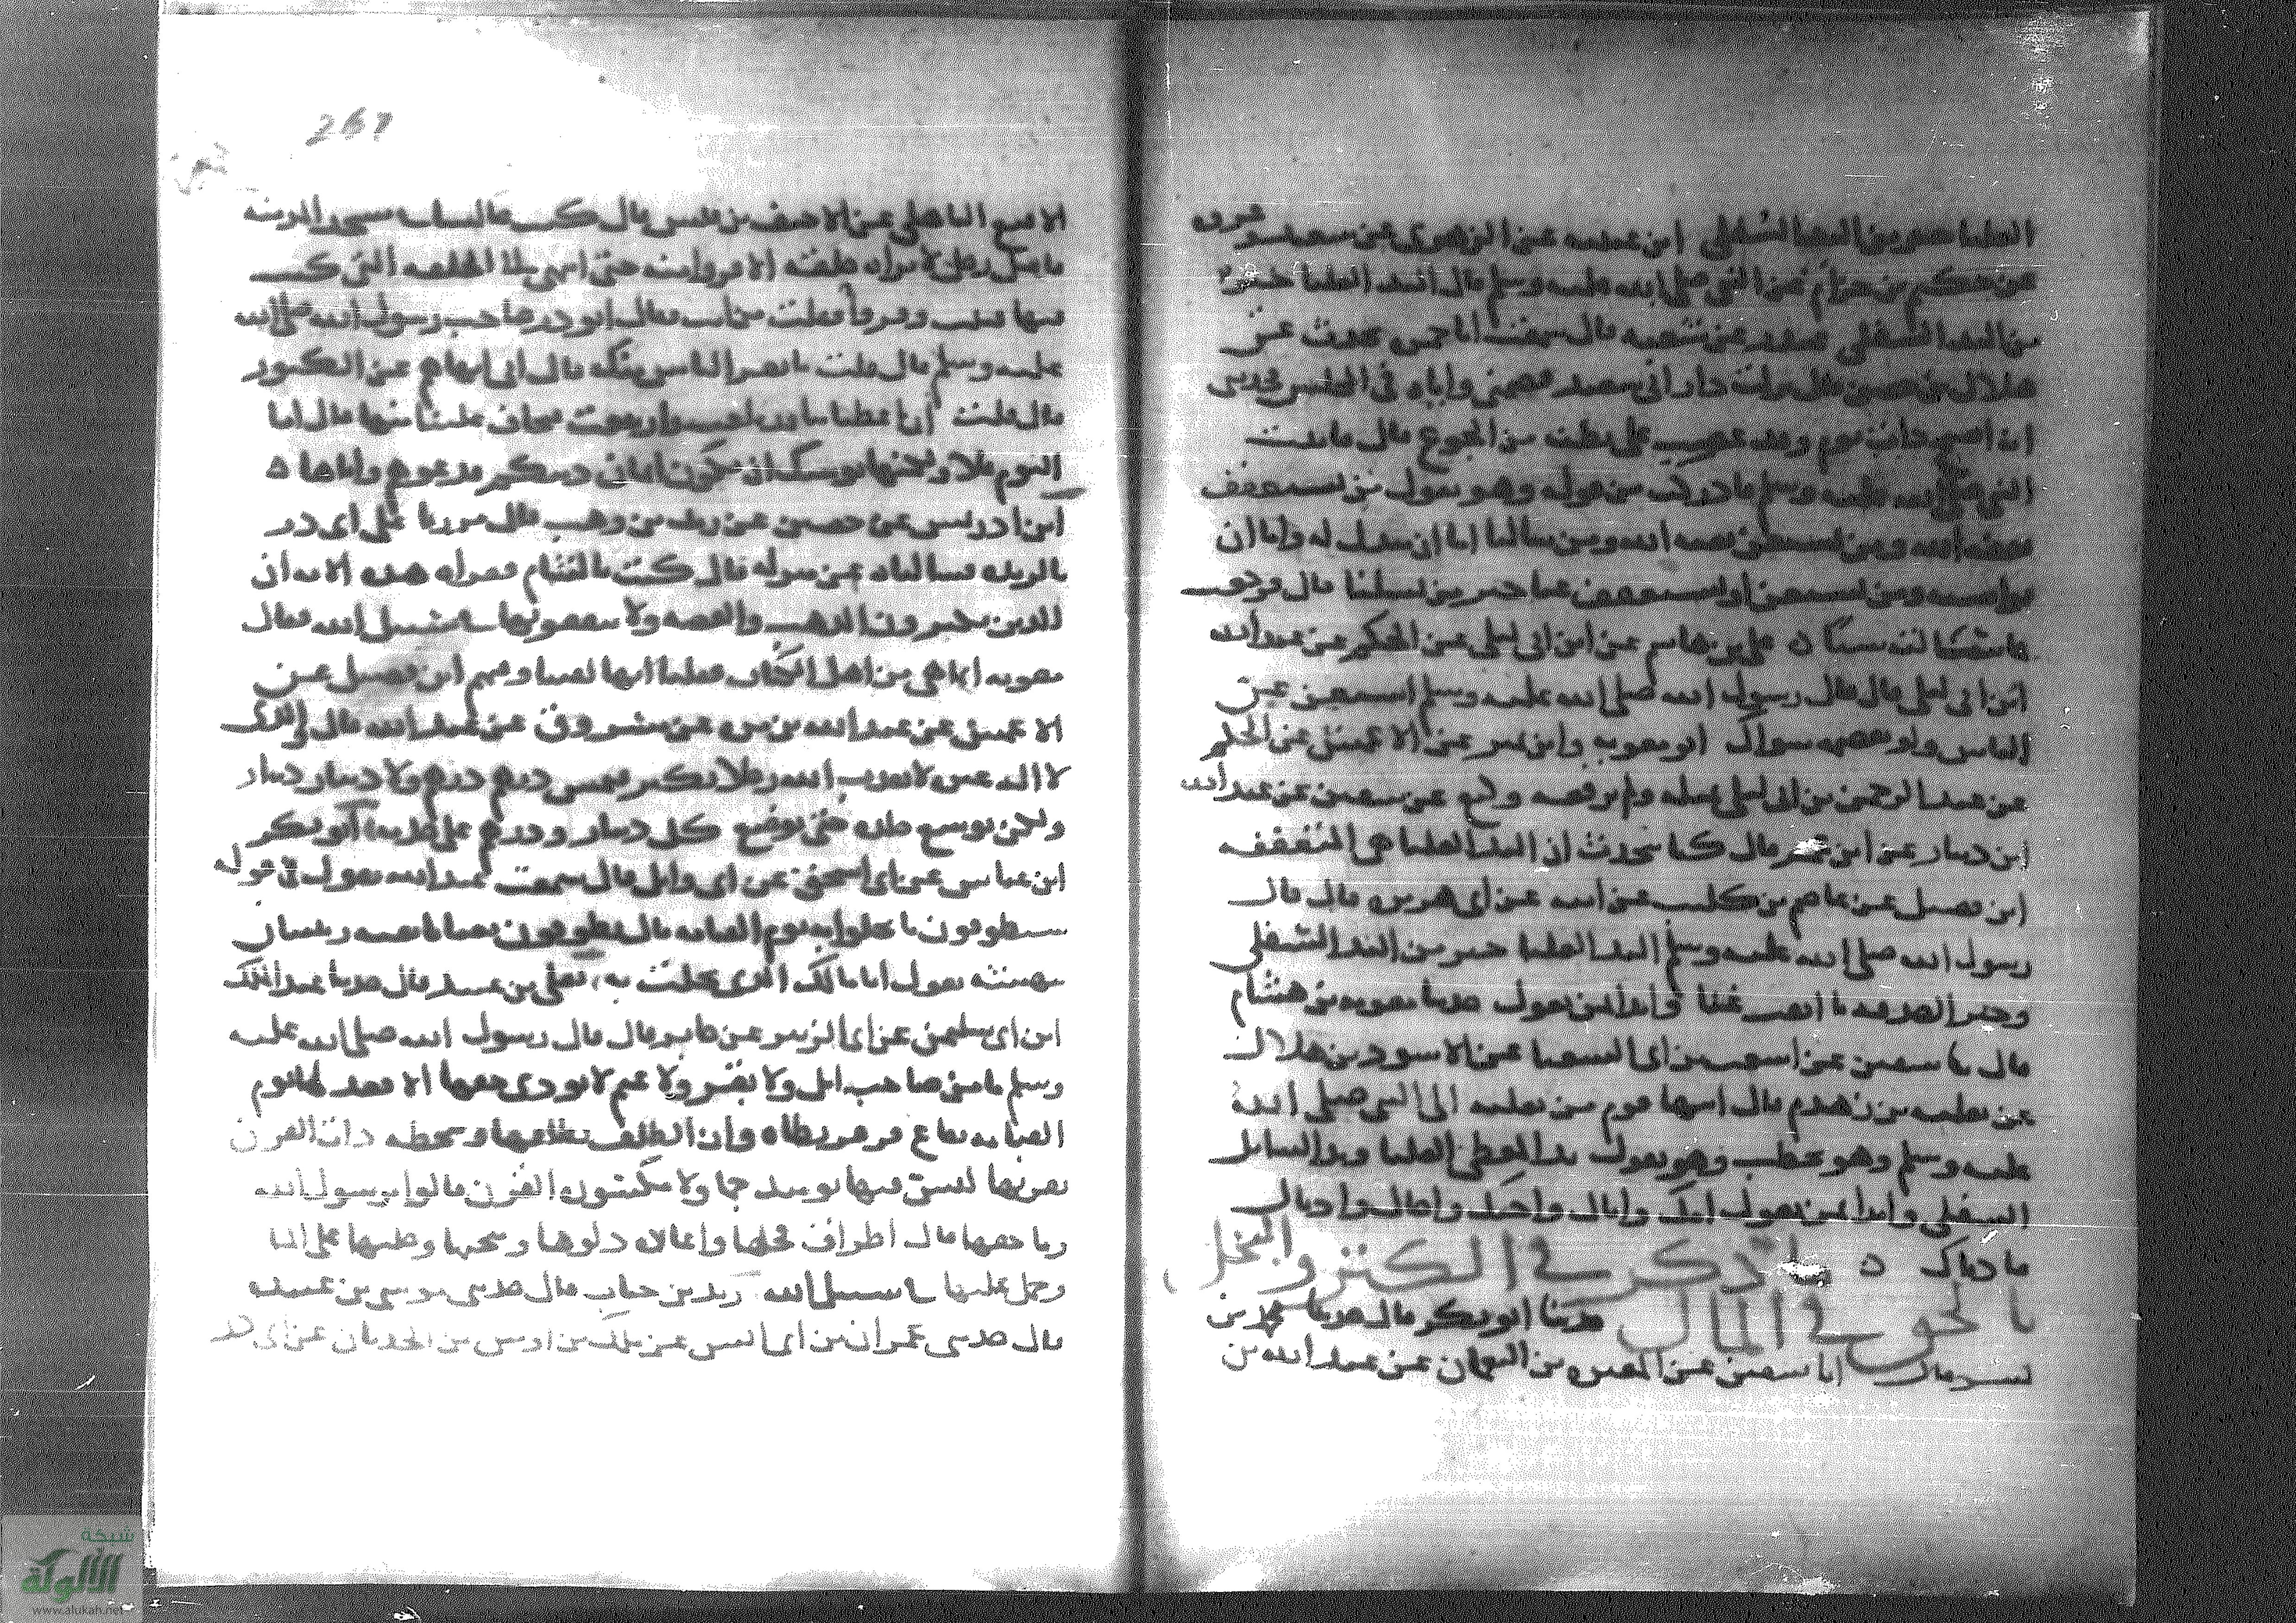 العليا خير من اليد السفلى ابن عيينه عن الزهري عن سعيد وعروه
عن حكيم بن حزام عن النبي صلى الله عليه وسلم قال اليد العليا خير
من اليد السفلى غندر عن شعبه قال سمعت ابا حمزه يحدث عن
هلال بن حصن قال نزلت دار ابي سعيد فضمني واياه في المجلس فحدث
انه اصبح ذات يوم وقد عصب على بطنه من الجوع قال فاتيت
النبي صلى الله عليه وسلم فادركت من قوله وهو يقول من يستعفف
يعفه الله ومن يستغن يغنه الله ومن سالنا اما ان نبذل له واما ان
نواسيه ومن يستغن او يستعفف عنا خير من يسلنا قال فرجعت
فما سالته شيئا ه على بن هاشم عن ابن ابي ليلى عن الحكم عن عبد الله
بن ابي ليلى قال قال رسول الله صلى الله عليه وسلم استغن عن
الناس ولو بقصمه سواك ابو معويه وابن نمير عن الاعمش عن الحكم
عن عبد الرحمن بن ابي ليلى مثله ولم يرفعه وكيع عن سفين عن عبد الله
ابن دينار عن ابن عمر قال كنا نتحدث ان اليد العليا هي المتعففه
ابن فضيل عن عاصم بن كليب عن ابيه عن ابي هريره قال قال
رسول الله صلى الله عليه وسلم اليد العليا خير من اليد السفلى
وخير الصدقه ما ابقت غنا وابدا بمن تعول حدثنا معويه بن هشام
قال ثنا سفين عن اشعث بن ابي الشعثا عن الاسود بن هلال
عن ثعلبه بن زهدم قال انتهى قوم من ثعلبه الى النبي صلى الله
عليه وسلم وهو يخطب وهو يقول يد المعطي العليا ويد السايل
السفلى وابدا بمن تعول امك واباك واختك واخاك وادناك
فادناك ه ما ذكر في الكنز والبخل
بالحق في المال حدثنا ابو بكر قال حدثنا محمد بن
بشر قال ابنا سفين عن المغيره بن النعمان عن عبد الله بن
267
الاقنع الباهلي عن الاحنف بن قيس قال كنت جالسا في مسجد المدينه
فاقبل رجل لا تراه حلقه الا فروا منه حتى انتهى الى الحلقه التي كنت
فيها فثبت وفروا فقلت من انت فقال ابو ذر صاحب رسول الله صلى الله
عليه وسلم قال قلت ما يفر الناس منك قال اني انهاهم عن الكنوز
قال قلت ان اعطياتنا قد بلغت وارتفعت فتخاف علينا منها قال اما
اليوم فلا ولكنها يوشك ان تكون اثمان دينكم فدعوهم واياها ه
ابن ادريس عن حصين عن زيد بن وهب قال مررنا على ابي ذر
بالربذه فسالناه عن منزله قال كنت بالشام فقرات هذه الايه ان
الذين يكنزون الذهب والفضه ولا ينفقونها في سبيل الله فقال
معويه انما هي من اهل الكتاب فقلت انها لفينا وفيهم ابن فضيل عن
الاعمش عن عبد الله بن مره عن مسروق عن عبد الله قال والذي
لا اله غيره لا يعذب الله رجلا بكنز فيمس درهم درهم ولا دينار دينار
ولكن يوسع جلده حتى يوضع كل دينار ودرهم على حدته ابو بكر
ابن عياش عن ابي اسحق عن ابي وايل قال سمعت عبد الله يقول في قوله
سيطوقون ما بخلوا به يوم القيامه قال يطوقون ثعبانا بفيه زبيبتان
ينهشه يقول انا مالك الذي بخلت به يعلى بن عبيد قال حدثنا عبد الملك
ابن ابي سليمن عن ابي الزبير عن جابر قال قال رسول الله صلى الله عليه
وسلم ما من صاحب ابل ولا بقر ولا غنم لا يودي حقها الا قعد لها يوم
القيامه بقاع قرقر تطاه ذات الظلف بظلفها وتنطحه ذات القرن
بقرنها ليس فيها يوميذ جما ولا مكسوره القرن قالوا يرسول الله
وما حقها قال اطراق فحلها واعاره دلوها ومنحتها وحلبها على الما
وحمل عليها في سبيل الله زيد بن حباب قال حدثني موسى بن عبيده
قال حدثني عمران بن ابي انس عن ملك بن اوس بن الحدثان عن ابي ذر
شبكة
الألوكة
www.alukah.net